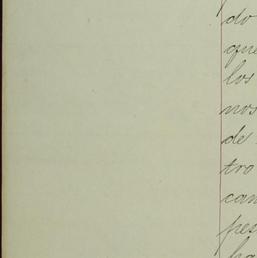 do
que
los
nos
de
tro
can
pes
ha